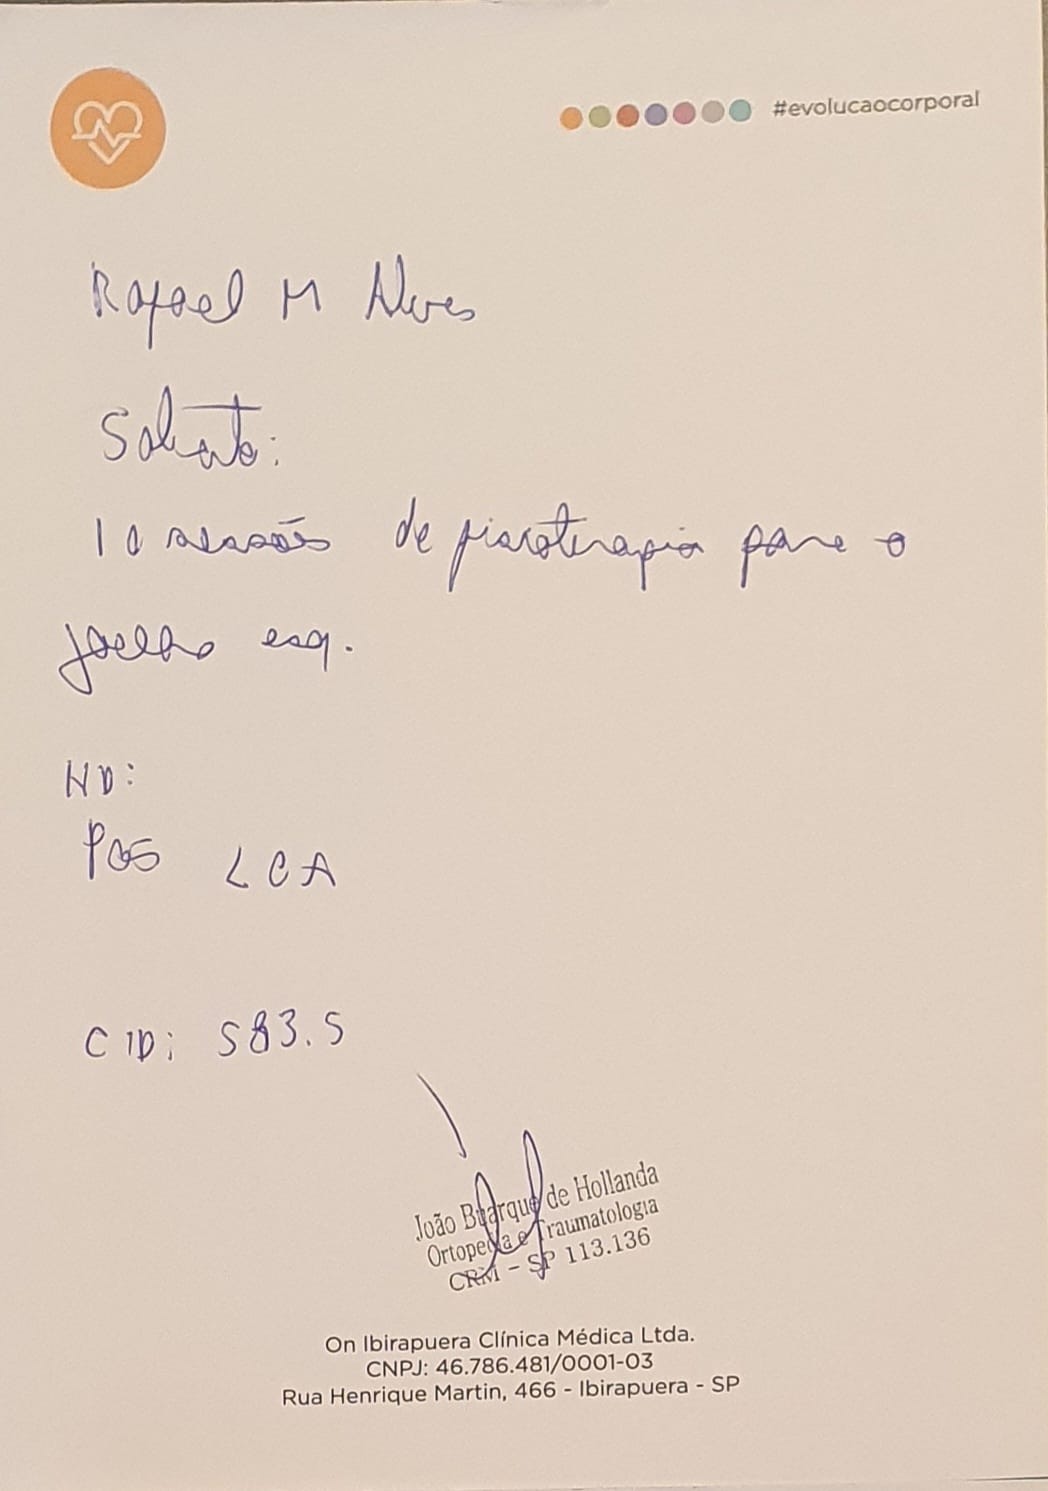 #evolucaocorporal
Rafael M Alves
Solicito:
10 sessões de fisioterapia para o
joelho esq.
HD:
Pós LCA
CID: S83.5
João Buarque de Hollanda
Ortopedia e Traumatologia
CRM - SP 113.136
On Ibirapuera Clínica Médica Ltda.
CNPJ: 46.786.481/0001-03
Rua Henrique Martin, 466 - Ibirapuera - SP